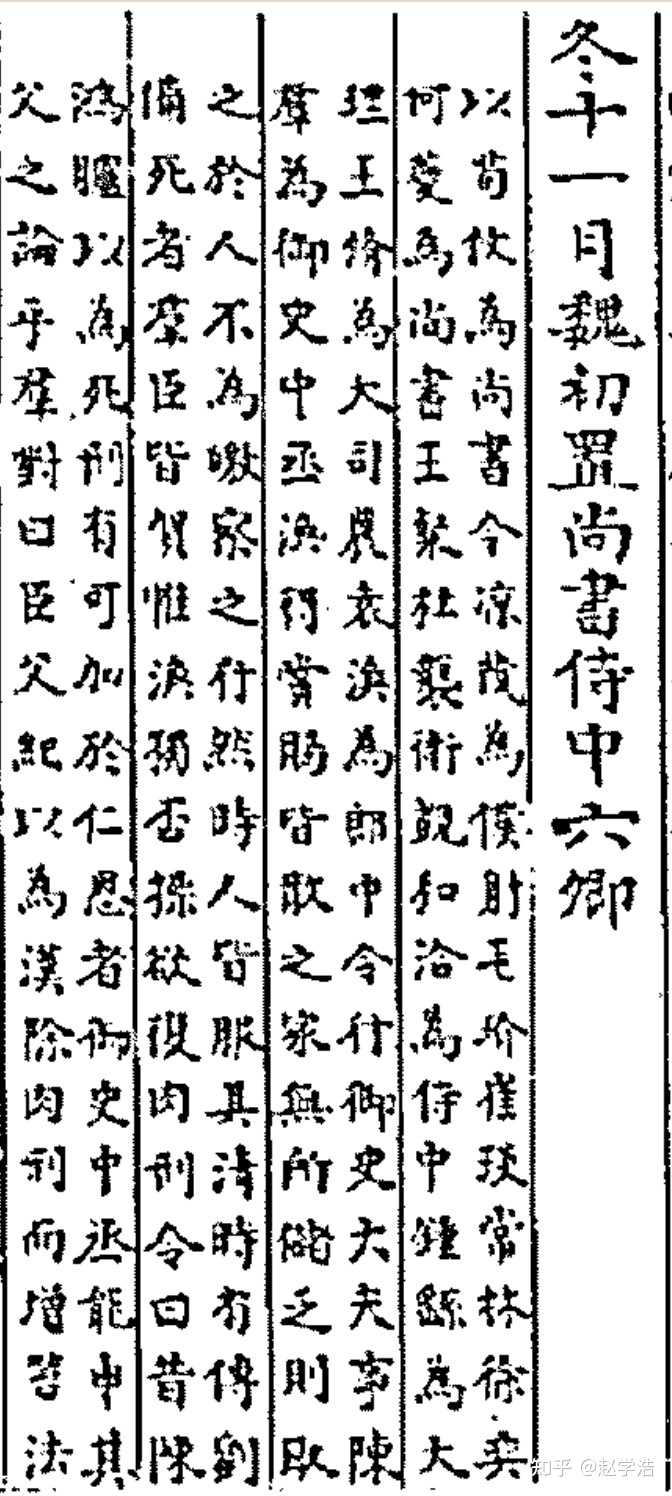 冬十一月魏初置尚書侍中六卿
以荀攸為尚書令凉茂為僕射毛玠崔琰常林徐奕
何夔為尚書王粲杜襲衛覬和洽為侍中鍾繇為大
理王脩為大司農袁渙為郎中令行御史大夫事陳
羣為御史中丞渙得賞賜皆散之家無所儲乏則取
之於人不為皦察之行然時人皆服其清時有傳劉
備死者羣臣皆賀惟渙獨否操欲復肉刑令曰昔陳
鴻臚以為死刑有可加於仁恩者御史中丞能申其
父之論乎羣對曰臣父紀以為漢除肉刑而增笞法
知乎 @赵学浩